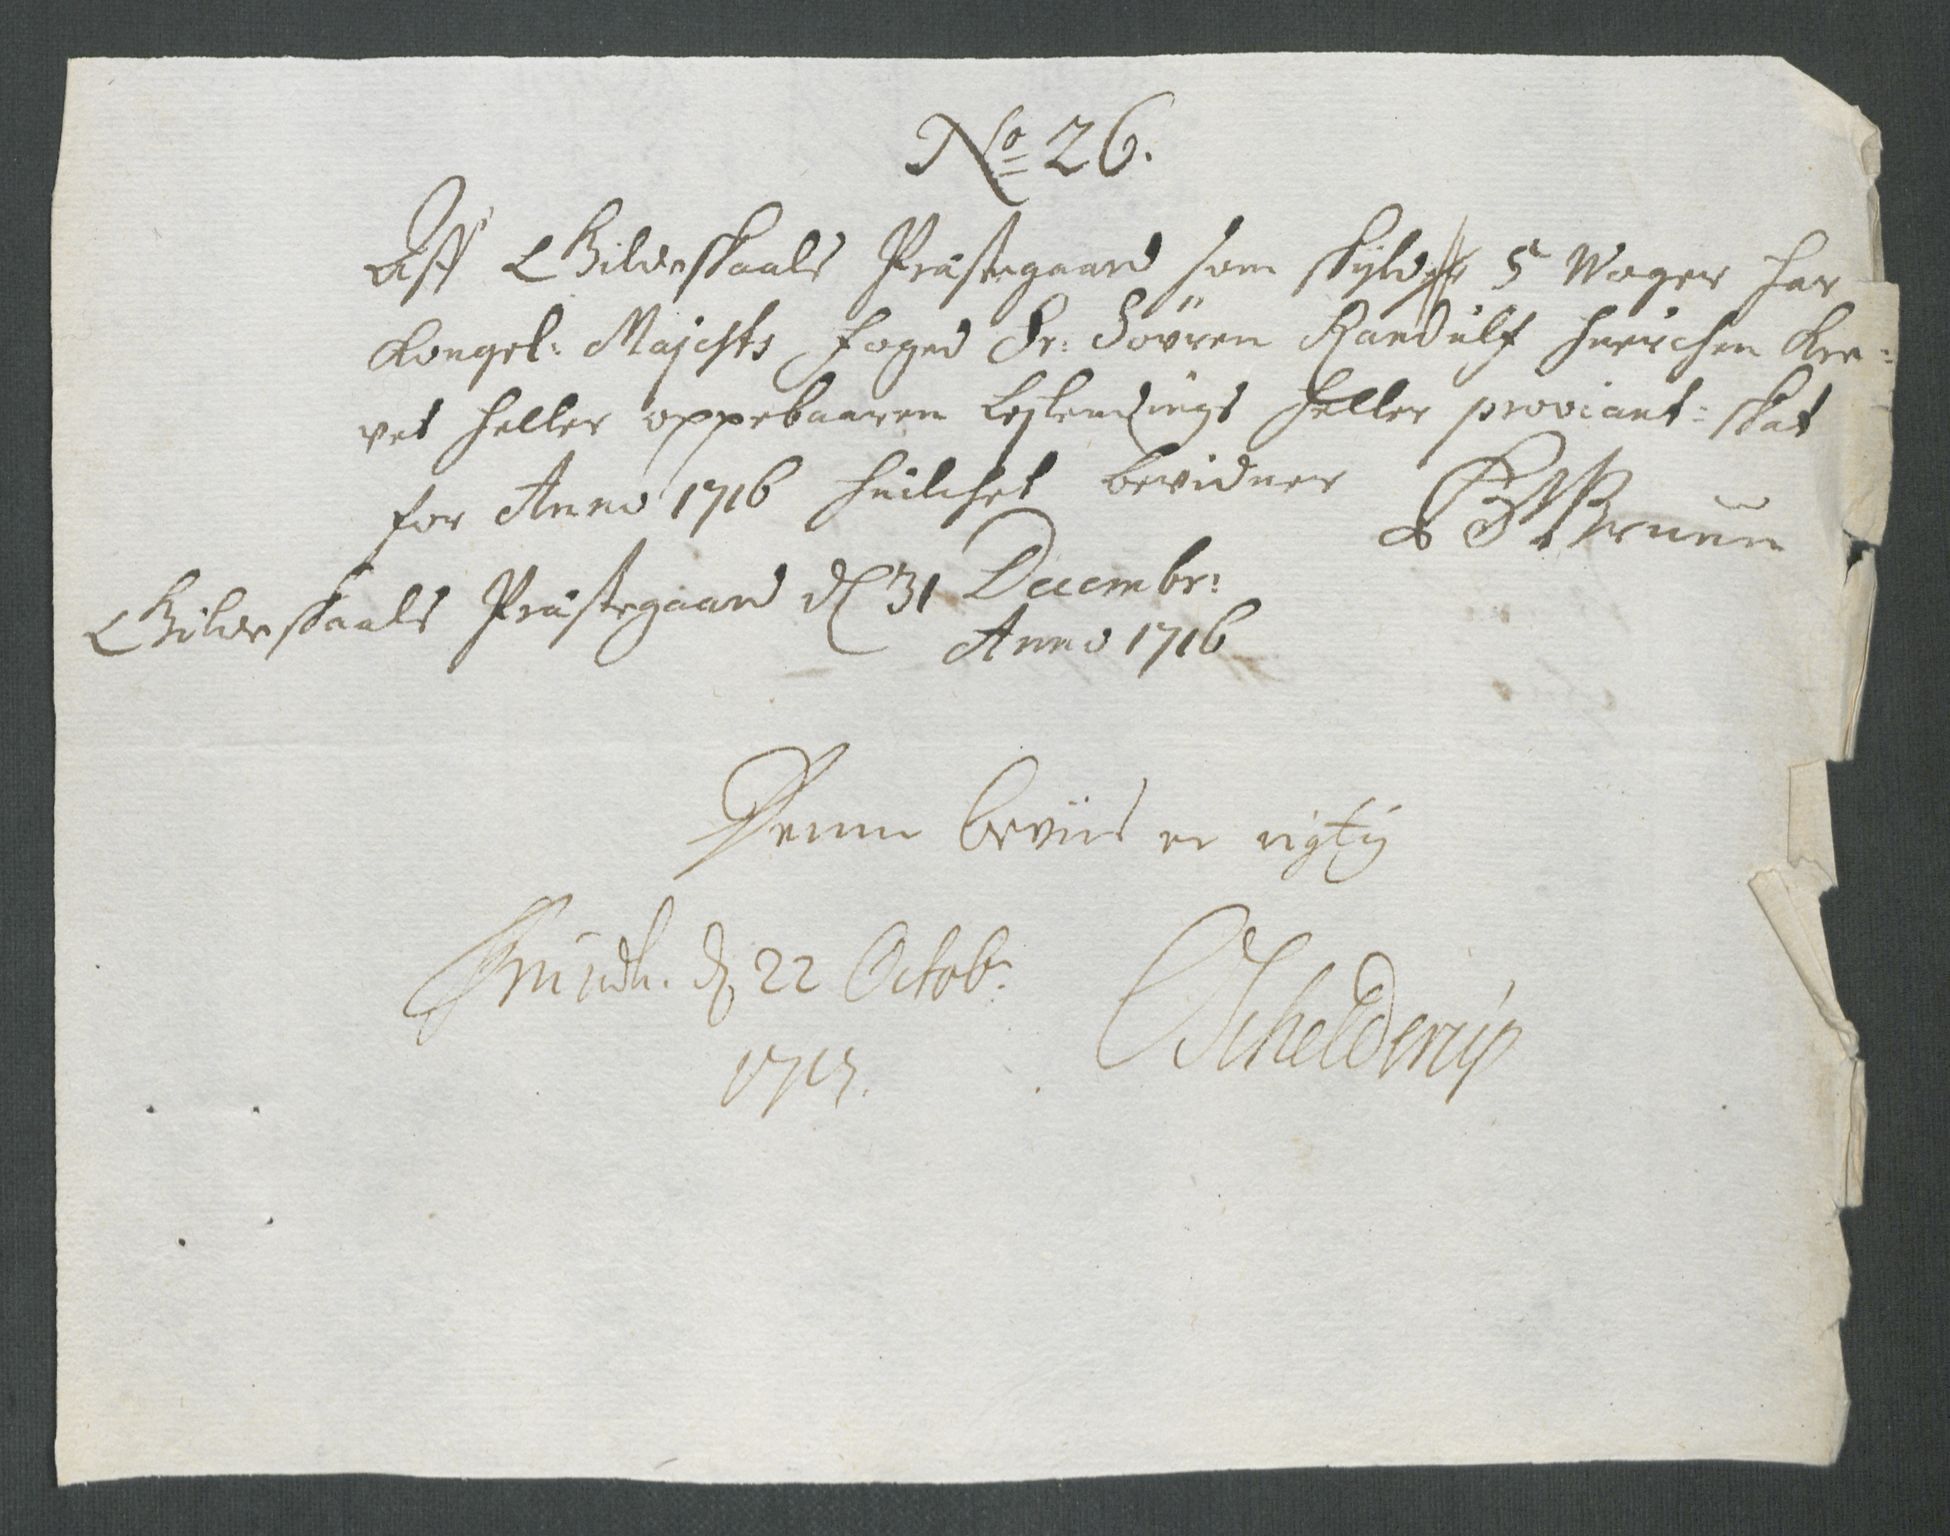 No 26.
Aff Gilleskaals Præstegaard som skylder 5 Woger har
Kongel: Majests foged Sr: Söfren Randülf huerchen Kre=
vet heller oppebaaren Leylendings heller proviant=skat
for Anno 1716 huilchet bevidner BBruun
Gilleskaals Præstegaard d 31 Decembr:
Anno 1716
Denne beviis er rigtig
d 22 Octob:
1717.
Schelderup